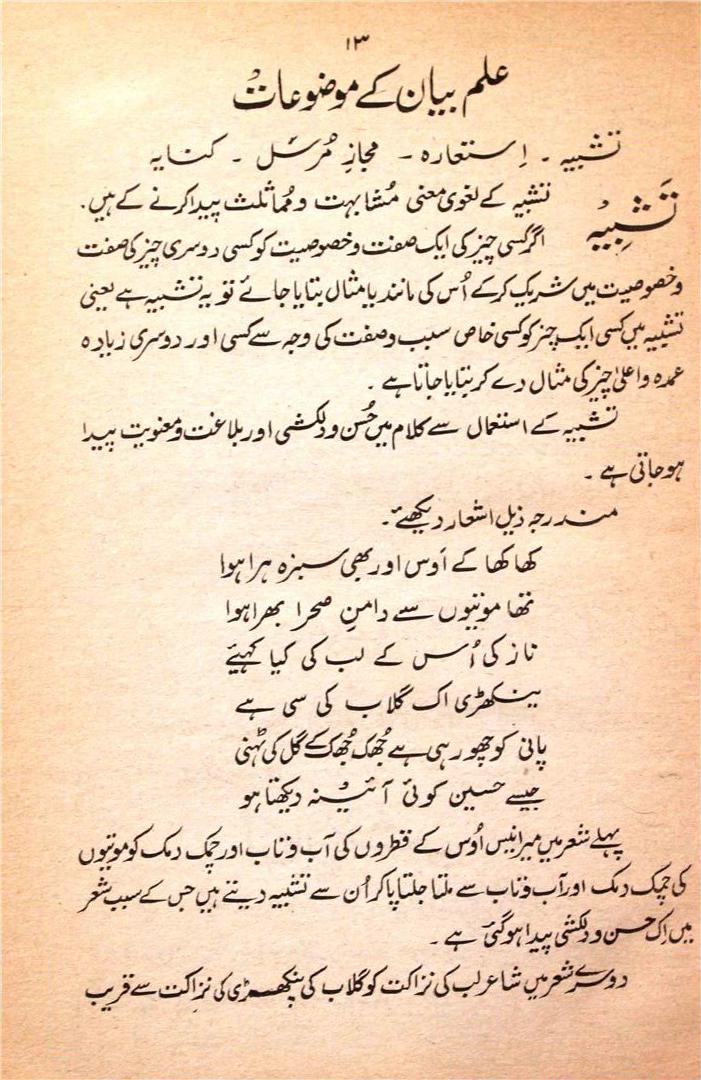 ۱۳
علم بیان کے موضوعات
تشبیہ ۔ اِستعارہ ۔ مجازِ مُرسَل ۔ کنایہ
تَشبِیہ
تشبیہ کے لغوی معنی مُشابہت و مُماثلث پیدا کرنے کے ہیں.
اگر کسی چیز کی ایک صفت و خصوصیت کو کسی دوسری چیز کی صفت
و خصوصیت میں شریک کر کے اُس کی مانند یا مثال بتایا جائے تو یہ تشبیہ ہے یعنی
تشبیہ میں کسی ایک چیز کو کسی خاص سبب و صفت کی وجہ سے کسی اور دوسری زیادہ
عمدہ و اعلیٰ چیز کی مثال دے کر بتایا جاتا ہے ۔
تشبیہ کے استعمال سے کلام میں حُسن و دلکشی اور بلاغت و معنویت پیدا
ہو جاتی ہے ۔
مندرجہ ذیل اشعار دیکھئے ۔
کھا کھا کے اَوس اور بھی سبزہ ہرا ہوا
تھا موتیوں سے دامنِ صحرا بھرا ہوا
ناز کی اُس کے لب کی کیا کہیئے
پنکھڑی اک گلاب کی سی ہے
پانی کو چھو رہی ہے جُھک جُھک کے گل کی ٹہنی
جیسے حسین کوئی آئینہ دیکھتا ہو
پہلے شعر میں میر انیس اَوس کے قطروں کی آب و تاب اور چمک دمک کو موتیوں
کی چمک دمک اور آب و تاب سے ملتا جلتا پا کر اُن سے تشبیہ دیتے ہیں جس کے سبب شعر
میں اِک حسن و دلکشی پیدا ہو گئی ہے ۔
دوسرے شعر میں شاعر لب کی نزاکت کو گلاب کی پنکھڑی کی نزاکت سے قریب